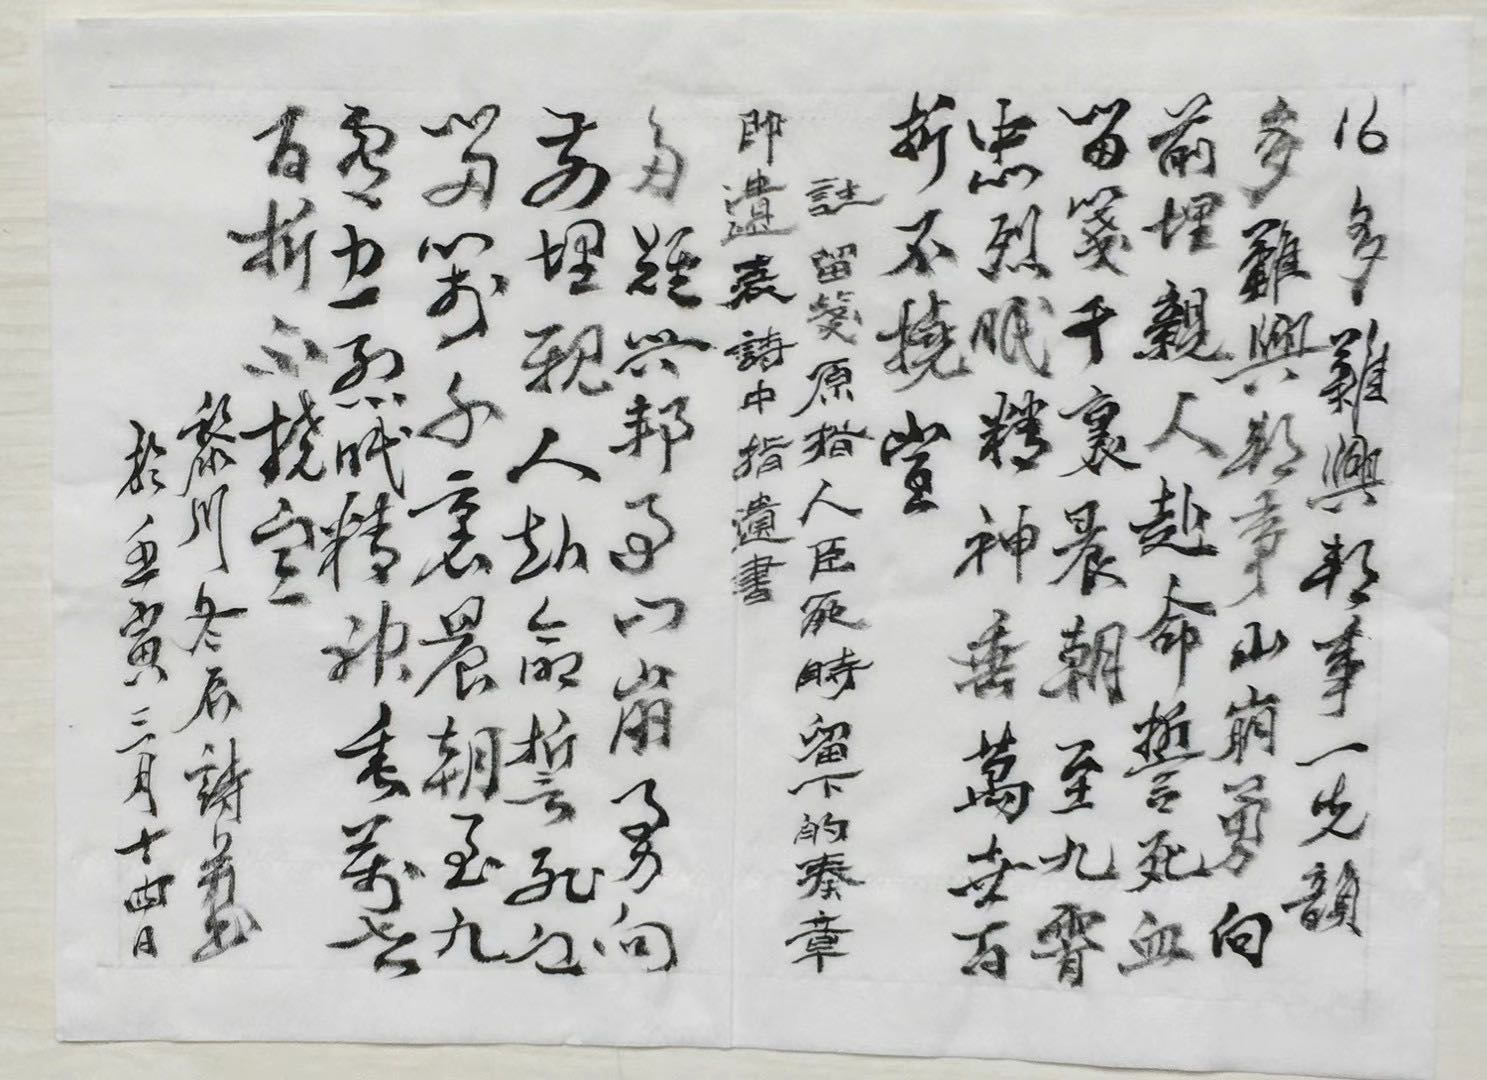 16 多難興邦事一先韻
多難興邦事山崩勇向
前埋親人赴命誓死血
留箋千裏晨朝至九霄
忠烈眠精神垂萬世百
折不撓宣
註留箋原指人臣死時留下的奏章
即遺表詩中指遺書
多難興邦事山崩勇向
前埋親人赴命誓死血
留箋千裏晨朝至九
霄忠烈眠精神垂萬世
百折不撓宣
黎川冬辰詩書
於壬寅三月十四日